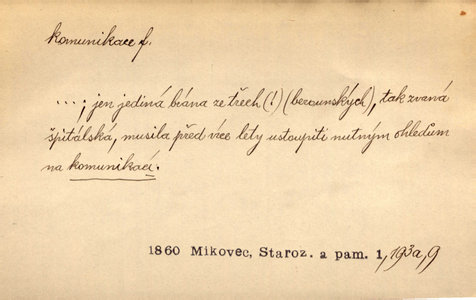 komunikace f.
...; jen jediná brána ze třech (!) (berounských), tak zvaná
špitálská, musila před více lety ustoupiti nutným ohledům
na komunikaci.
1860 Mikovec, Staroz. a pam. 1, 193a, 9